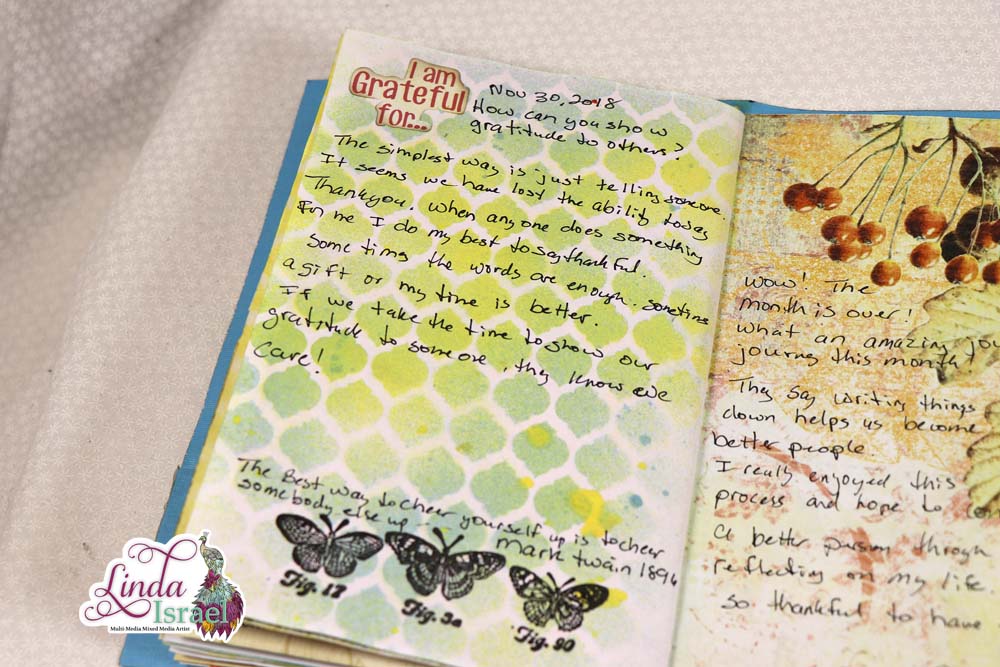 I am
Grateful
for...
Nov 30, 2018
How can you show
gratitude to others?
The simplest way is just telling someone.
It seems we have lost the ability today
Thankyou. When any one does something
For me I do my best to say thankful.
Some times the words are enough. Sometims
a gift or my time is better.
If we take the time to show our
gratitude to some one, they know we
Care!
The Best way to cheer yourself up is to cheer
somebody else up -
Mark Twain 1896
Fig. 17
Fig. 9a
Fig. 90
Wow! The
month is over!
What an amazing
journy this month
They say writing things
down helps us become
better people
I really enjoyed this
process and hope to
a better person through
reflecting on my life.
so thankful to have
Linda
Israel
Multi Media Mixed Media Artist